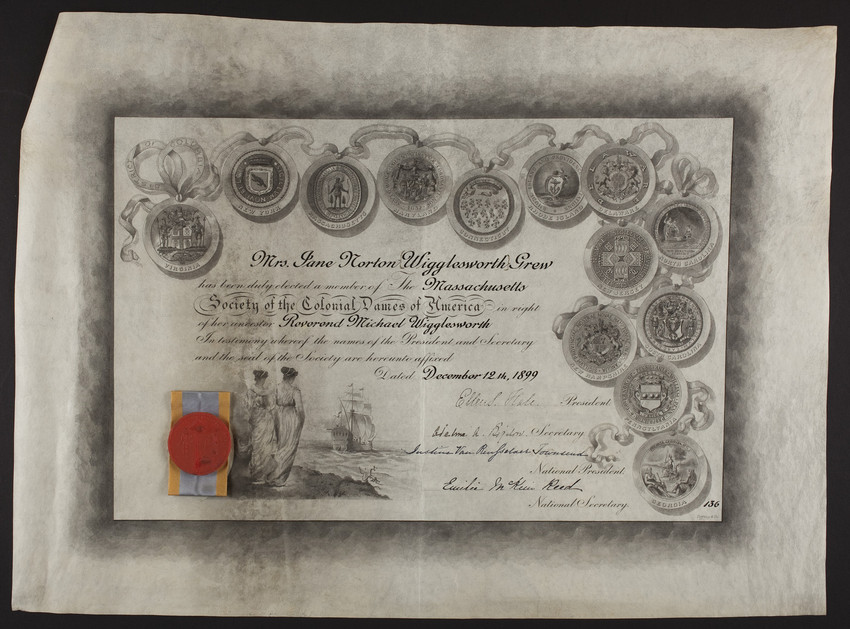 VIRGINIA
NEW YORK
MASSACHUSETTS
MARYLAND
CONNECTICUT
RHODE ISLAND
DELAWARE
NORTH CAROLINA
NEW JERSEY
SOUTH CAROLINA
NEW HAMPSHIRE
PENNSYLVANIA
GEORGIA
Mrs. Jane Norton Wigglesworth Grew
has been duly elected a member of The Massachusetts
Society of the Colonial Dames of America in right
of her ancestor Reverend Michael Wigglesworth
In testimony whereof the names of the President and Secretary
and the seal of the Society are hereunto affixed
Dated December 12th, 1899
Ellen S. Hale President.
Secretary.
Justine Van Rensselaer Townsend
National President.
Emilie McKim Reed
National Secretary.
136